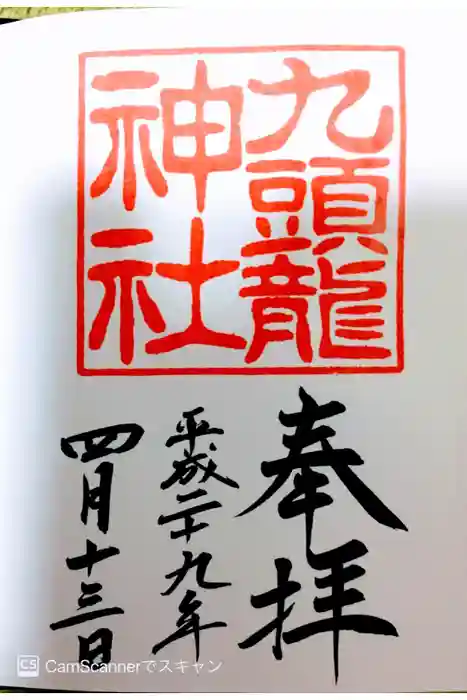 九頭龍
神社
奉拝
平成二十九年
四月十三日
CS CamScannerでスキャン